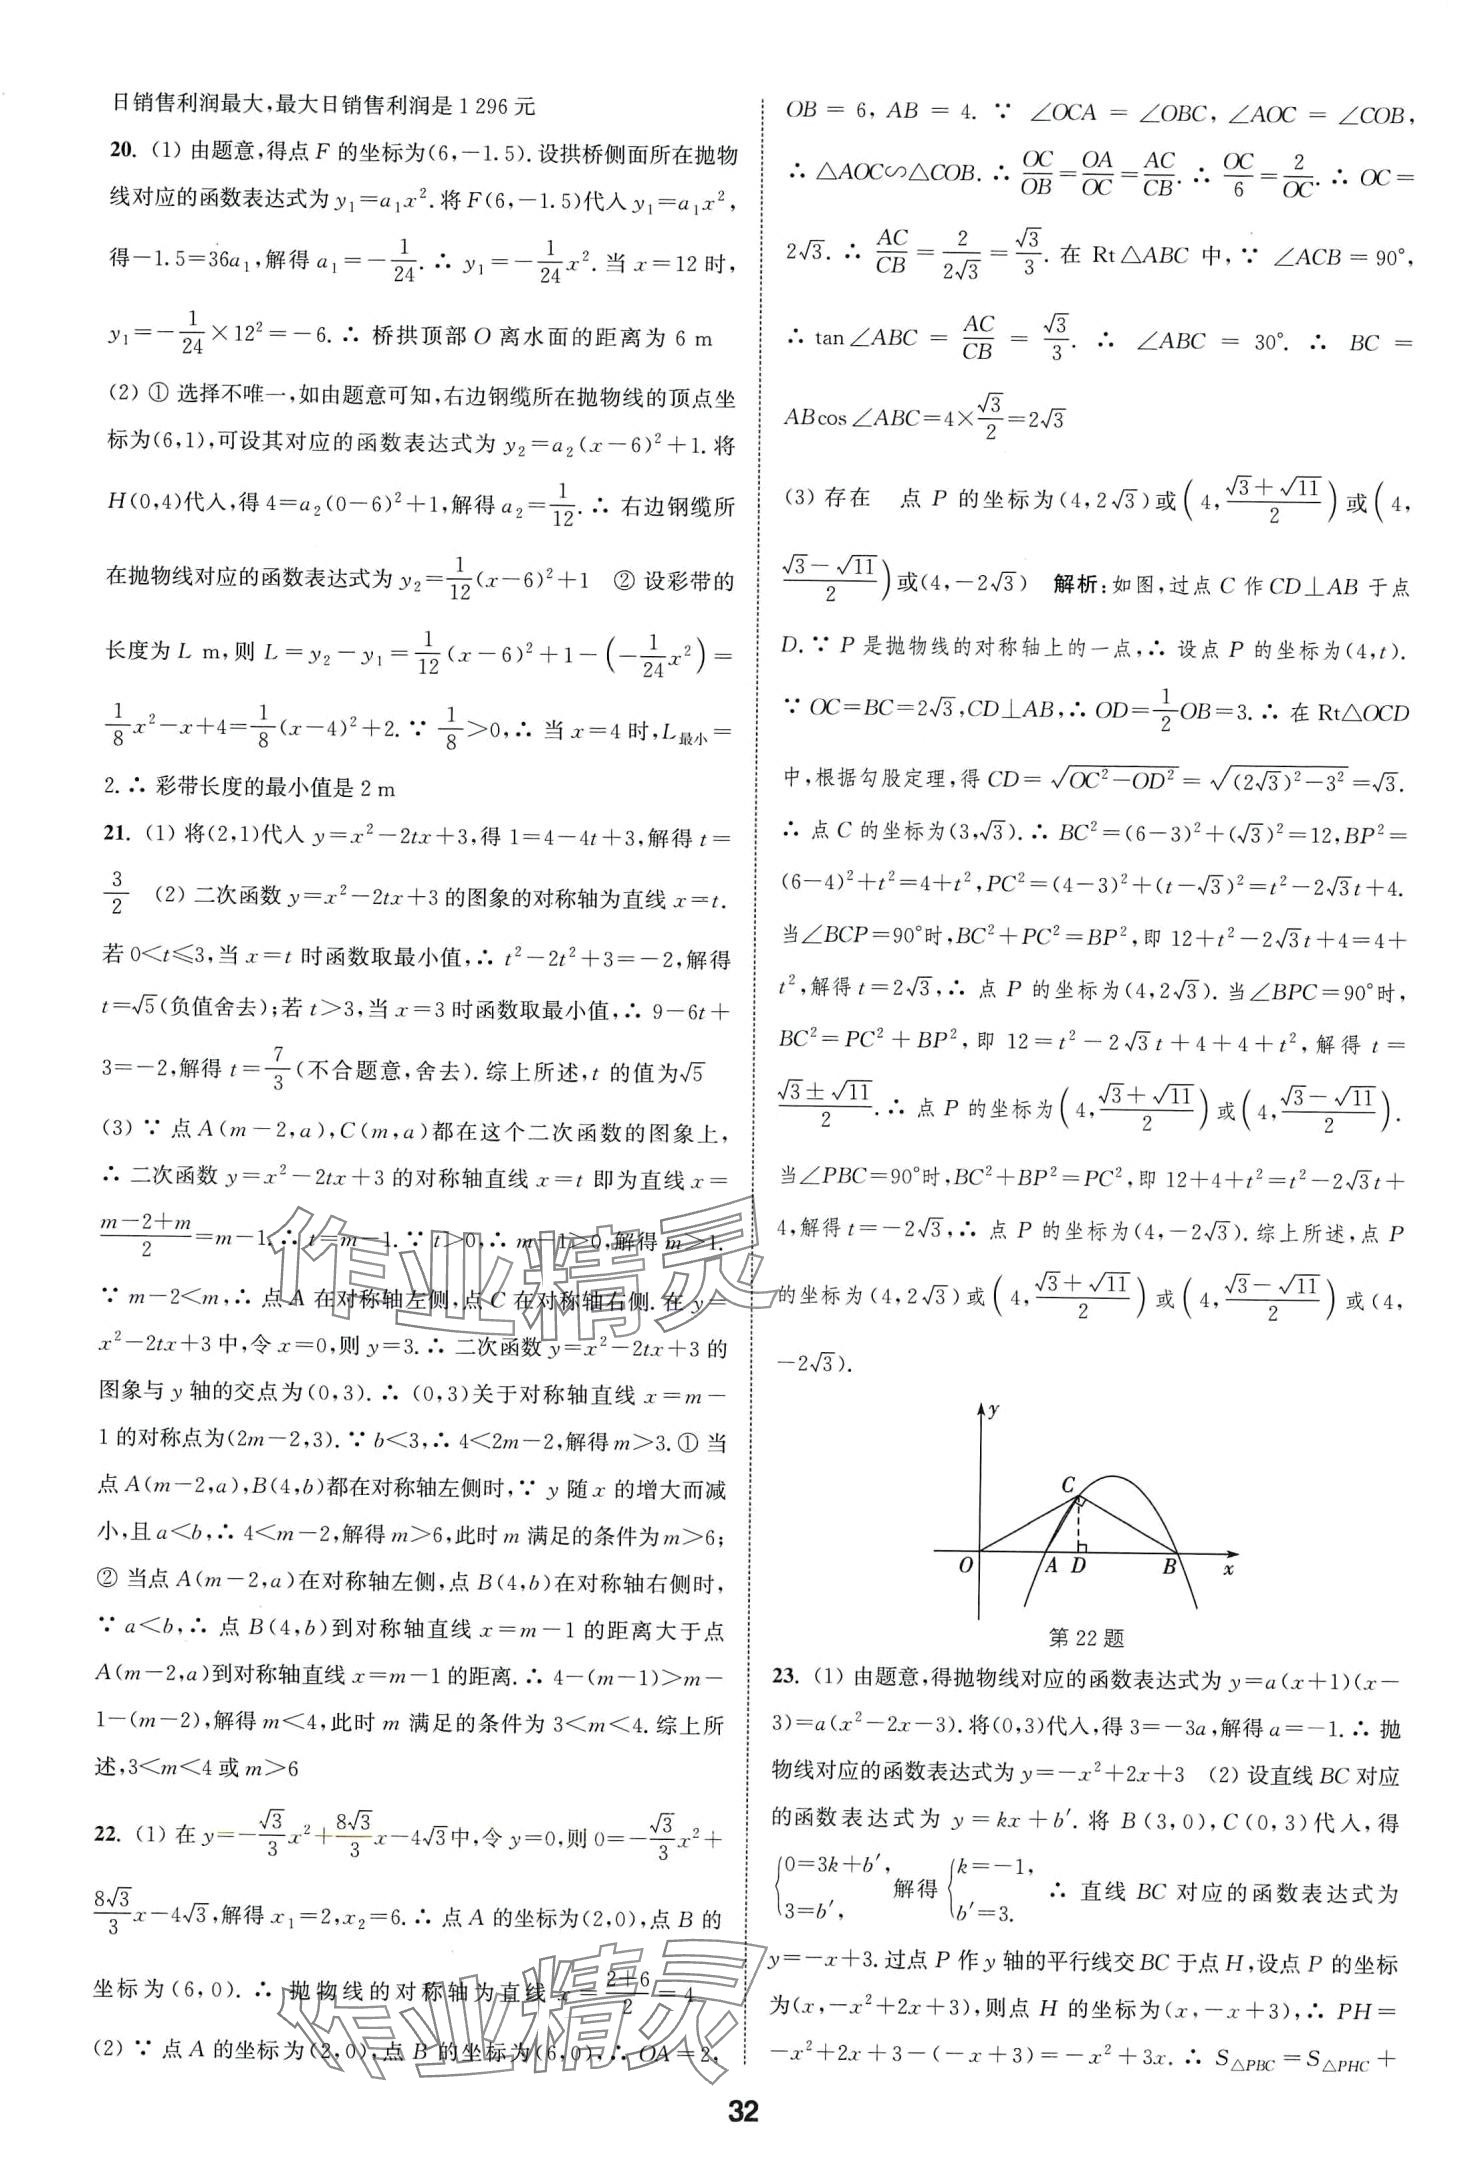 日销售利润最大,最大日销售利润是 1 296 元
20. (1) 由题意,得点 F 的坐标为(6,-1.5).设拱桥侧面所在抛物
线对应的函数表达式为 y₁=a₁x².将 F(6,-1.5)代入 y₁=a₁x²,
得-1.5=36a₁,解得 a₁=-1/24.∴ y₁=-1/24x².当 x=12 时,
y₁=-1/24×12²=-6.∴ 桥拱顶部 O 离水面的距离为 6 m
(2) ① 选择不唯一,如由题意可知,右边钢缆所在抛物线的顶点坐
标为(6,1),可设其对应的函数表达式为 y₂=a₂(x-6)²+1.将
H(0,4)代入,得 4=a₂(0-6)²+1,解得 a₂=1/12.∴ 右边钢缆所
在抛物线对应的函数表达式为 y₂=1/12(x-6)²+1 ② 设彩带的
长度为 L m,则 L=y₂-y₁=1/12(x-6)²+1-(-1/24x²)=
1/8x²-x+4=1/8(x-4)²+2.∵ 1/8>0,∴ 当 x=4 时,L最小=
2.∴ 彩带长度的最小值是 2 m
21. (1) 将(2,1)代入 y=x²-2tx+3,得 1=4-4t+3,解得 t=
3/2 (2) 二次函数 y=x²-2tx+3 的图象的对称轴为直线 x=t.
若 0<t≤3,当 x=t 时函数取最小值,∴ t²-2t²+3=-2,解得
t=√5(负值舍去);若 t>3,当 x=3 时函数取最小值,∴ 9-6t+
3=-2,解得 t=7/3(不合题意,舍去).综上所述,t 的值为√5
(3) ∵ 点 A(m-2,a),C(m,a)都在这个二次函数的图象上,
∴ 二次函数 y=x²-2tx+3 的对称轴直线 x=t 即为直线 x=
(m-2+m)/2=m-1.∴ t=m-1.∵ t>0,∴ m-1>0,解得 m>1.
∵ m-2<m,∴ 点 A 在对称轴左侧,点 C 在对称轴右侧.在 y=
x²-2tx+3 中,令 x=0,则 y=3.∴ 二次函数 y=x²-2tx+3 的
图象与 y 轴的交点为(0,3).∴ (0,3)关于对称轴直线 x=m-
1 的对称点为(2m-2,3).∵ b<3,∴ 4<2m-2,解得 m>3.① 当
点 A(m-2,a),B(4,b)都在对称轴左侧时,∵ y 随 x 的增大而减
小,且 a<b,∴ 4<m-2,解得 m>6,此时 m 满足的条件为 m>6;
② 当点 A(m-2,a)在对称轴左侧,点 B(4,b)在对称轴右侧时,
∵ a<b,∴ 点 B(4,b)到对称轴直线 x=m-1 的距离大于点
A(m-2,a)到对称轴直线 x=m-1 的距离.∴ 4-(m-1)>m-
1-(m-2),解得 m<4,此时 m 满足的条件为 3<m<4.综上所
述,3<m<4 或 m>6
22. (1) 在 y=-√3/3x²+8√3/3x-4√3中,令 y=0,则 0=-√3/3x²+
8√3/3x-4√3,解得 x₁=2,x₂=6.∴ 点 A 的坐标为(2,0),点 B 的
坐标为(6,0).∴ 抛物线的对称轴为直线 x=(2+6)/2=4
(2) ∵ 点 A 的坐标为(2,0),点 B 的坐标为(6,0),∴ OA=2,
OB=6,AB=4.∵ ∠OCA=∠OBC,∠AOC=∠COB,
∴ △AOC∽△COB.∴ OC/OB=OA/OC=AC/CB.∴ OC/6=2/OC.∴ OC=
2√3.∴ AC/CB=2/(2√3)=√3/3.在 Rt△ABC 中,∵ ∠ACB=90°,
∴ tan∠ABC=AC/CB=√3/3.∴ ∠ABC=30°.∴ BC=
ABcos∠ABC=4×√3/2=2√3
(3) 存在 点 P 的坐标为(4,2√3)或(4,(√3+√11)/2)或(4,
(√3-√11)/2)或(4,-2√3) 解析:如图,过点 C 作 CD⊥AB 于点
D.∵ P 是抛物线的对称轴上的一点,∴ 设点 P 的坐标为(4,t).
∵ OC=BC=2√3,CD⊥AB,∴ OD=1/2OB=3.∴ 在 Rt△OCD
中,根据勾股定理,得 CD=√(OC²-OD²)=√((2√3)²-3²)=√3.
∴ 点 C 的坐标为(3,√3).∴ BC²=(6-3)²+(√3)²=12,BP²=
(6-4)²+t²=4+t²,PC²=(4-3)²+(t-√3)²=t²-2√3t+4.
当∠BCP=90°时,BC²+PC²=BP²,即 12+t²-2√3t+4=4+
t²,解得 t=2√3,∴ 点 P 的坐标为(4,2√3).当∠BPC=90°时,
BC²=PC²+BP²,即 12=t²-2√3t+4+4+t²,解得 t=
(√3±√11)/2.∴ 点 P 的坐标为(4,(√3+√11)/2)或(4,(√3-√11)/2).
当∠PBC=90°时,BC²+BP²=PC²,即 12+4+t²=t²-2√3t+
4,解得 t=-2√3,∴ 点 P 的坐标为(4,-2√3).综上所述,点 P
的坐标为(4,2√3)或(4,(√3+√11)/2)或(4,(√3-√11)/2)或(4,
-2√3).
y
C
O A D B x
第 22 题
23. (1) 由题意,得抛物线对应的函数表达式为 y=a(x+1)(x-
3)=a(x²-2x-3).将(0,3)代入,得 3=-3a,解得 a=-1.∴ 抛
物线对应的函数表达式为 y=-x²+2x+3 (2) 设直线 BC 对应
的函数表达式为 y=kx+b′.将 B(3,0),C(0,3)代入,得
{0=3k+b′, 3=b′, 解得 {k=-1, b′=3. ∴ 直线 BC 对应的函数表达式为
y=-x+3.过点 P 作 y 轴的平行线交 BC 于点 H,设点 P 的坐标
为(x,-x²+2x+3),则点 H 的坐标为(x,-x+3),∴ PH=
-x²+2x+3-(-x+3)=-x²+3x.∴ S△PBC=S△PHC+
32
作业精灵
作业精灵